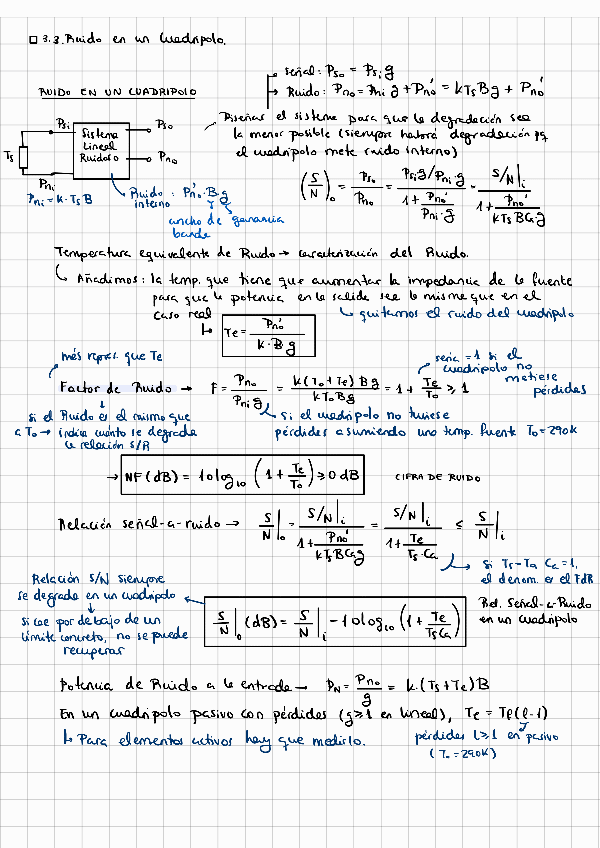 □ 3.3. Ruido en un Cuadripolo.
señal: Pso = Psi g
Ruido: Pno = Pni g + Pno' = k Ts B g + Pno'
RUIDO EN UN CUADRIPOLO
Psi
Pso
Ts
Sistema
Lineal
Ruidoso
Pno
Pni
Pni = k·Ts B
Ruido
interno : Pno'·B g
ancho de
banda
ganancia
Diseñar el sistema para que la degradación sea
la menor posible (siempre habrá degradación pq
el cuadripolo mete ruido interno)
(S/N)o = Pso/Pno = (Psi g / Pni·g)/(1 + Pno'/(Pni·g)) = (S/N|i)/(1 + Pno'/(k Ts B Ca g))
Temperatura equivalente de Ruido → caracterización del Ruido.
↳ Añadimos: la temp. que tiene que aumentar la impedancia de la fuente
para que la potencia en la salida sea la misma que en el
caso real
↳ quitamos el ruido del cuadripolo
↳ Te = Pno'/(k·B g)
más repres. que Te
sería =1 si el
cuadripolo no
metiese
pérdidas
Factor de Ruido → F = Pno/(Pni g) = k(To + Te) B g/(k To B g) = 1 + Te/To ≥ 1
si el Ruido es el mismo que
a To → indica cuánto se degrada
la relación S/R
si el cuadripolo no tuviese
pérdidas asumiendo una temp. fuente To = 290K
→ NF (dB) = 10 log10 (1 + Te/To) ≥ 0 dB
CIFRA DE RUIDO
Relación señal-a-ruido → S/N|o = (S/N|i)/(1 + Pno'/(k Ts B Ca g)) = (S/N|i)/(1 + Te/(Ts·Ca)) ≤ S/N|i
Si Ts = Ta Ca = 1,
el denom. es el FdR
Relación S/N siempre
se degrada en un cuadripolo
si cae por debajo de un
límite concreto, no se puede
recuperar
S/N|o (dB) = S/N|i − 10 log10 (1 + Te/(Ts Ca))
Rel. Señal-a-Ruido
en un cuadripolo
Potencia de Ruido a la entrada → PN = Pno/g = k·(Ts + Te) B
En un cuadripolo pasivo con pérdidas (g≥1 en lineal), Te = Tl(l−1)
↳ Para elementos activos hay que medirlo.
pérdidas l≥1 en pasivo
(To = 290K)